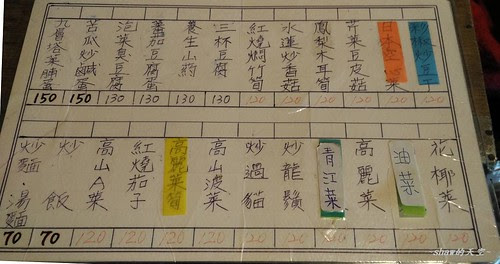 彩椒炒豆干
芹菜豆皮菇
鳳梨木耳筍
水蓮炒香菇
紅燒燜竹筍
三杯豆腐
養生山藥
蕃茄豆腐蛋
泡菜臭豆腐
苦瓜炒鹹蛋
九層塔菜脯蛋
150 150 130 130 130 130 120 120 120 120 120 120
花椰菜
油菜
高麗菜
青江菜
炒龍鬚
炒過貓
高山波菜
高麗菜筍
紅燒茄子
高山A菜
炒飯
炒麵·湯麵
70 70 120 120 120 120 120 120 120 120
shaw的天空